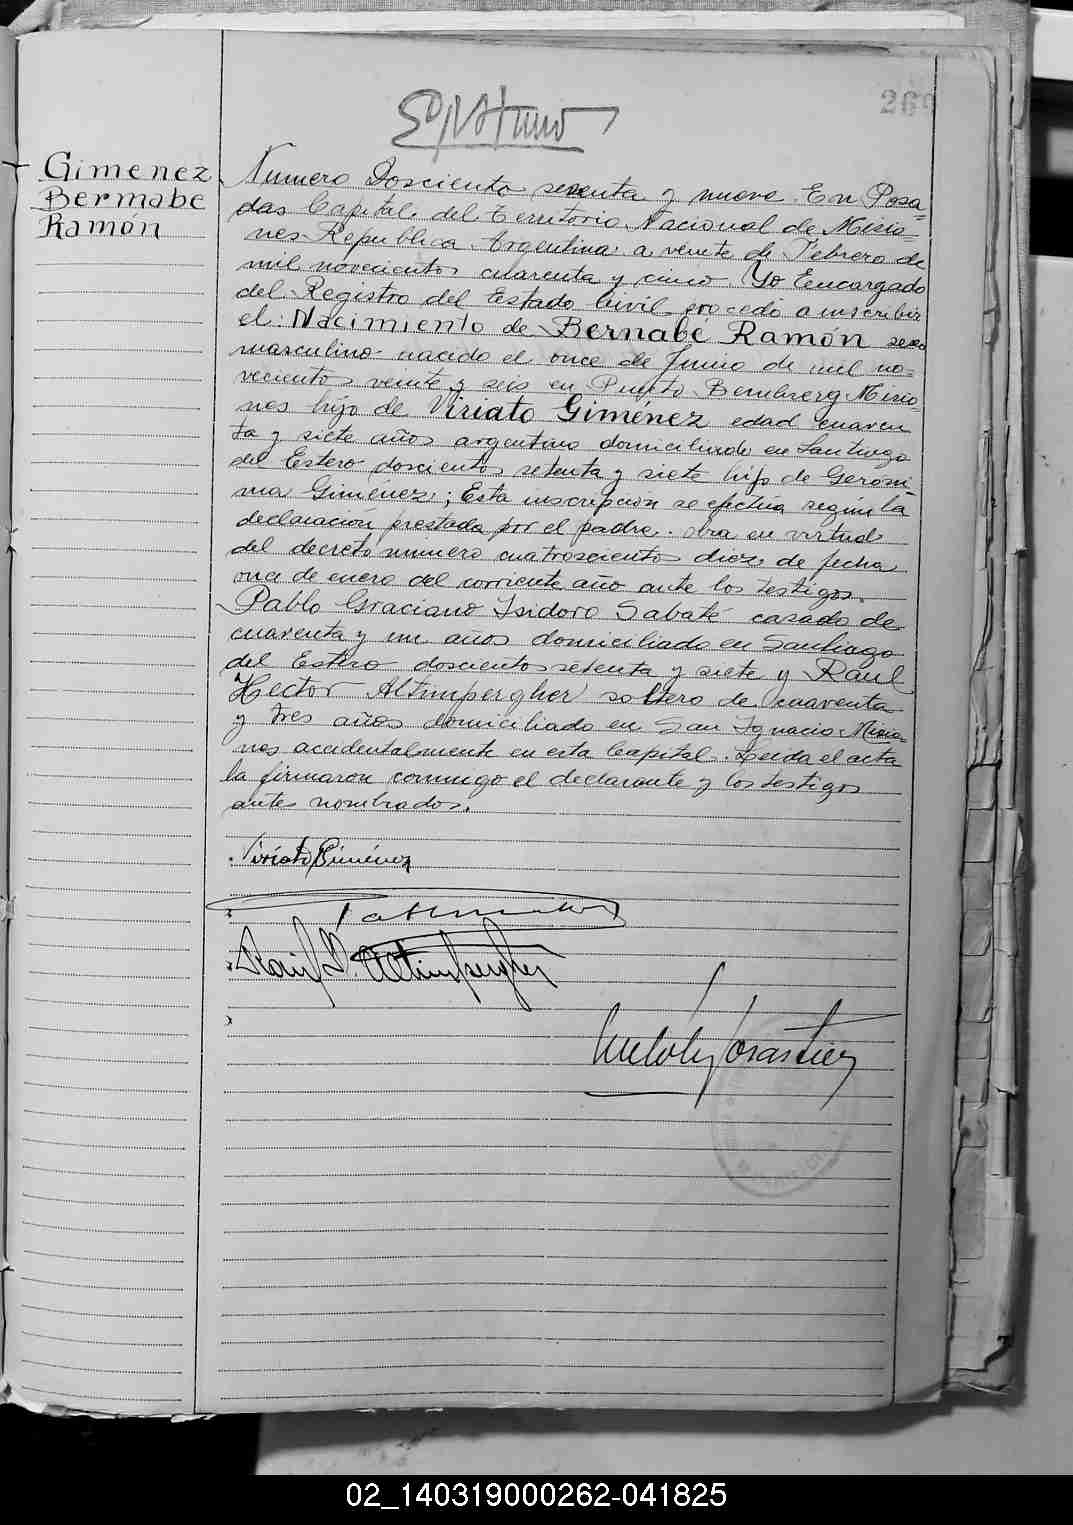 269
Gimenez
Bermabe
Ramón
Numero Dosciento sesenta y nueve. En Posa-
das Capital. del Territorio Nacional de Misio-
nes Republica Argentina a veinte de Febrero de
mil novecientos cuarenta y cinco. Yo Encargado
del Registro del Estado Civil procedo a inscribir
el: Nacimiento de Bernabé Ramón sexo
masculino nacido el once de Junio de mil no-
veciento veinte y seis en Puerto Bemberg Misio-
nes hijo de Viriato Giménez edad cuaren
ta y siete años argentino domiciliado en Santiago
del Estero doscientos setenta y siete hijo de Geróni-
ma Giménez; Esta inscripcion se efectúa segun la
declaración prestada por el padre. obra en virtud
del decreto numero cuatrosciento diez de fecha
once de enero del corriente año ante los testigos.
Pablo Graciano Isidoro Sabaté casado de
cuarenta y un años domiciliado en Santiago
del Estero doscientos setenta y siete y Raul
Hector Altimpergher soltero de cuarenta
y tres años domiciliado en San Ignacio Misio-
nes accidentalmente en esta Capital. Leida el acta
la firmaron conmigo el declarante y los testigos
antes nombrados.
Viriato Giménez
Raul H. Altimpergher
02_140319000262-041825